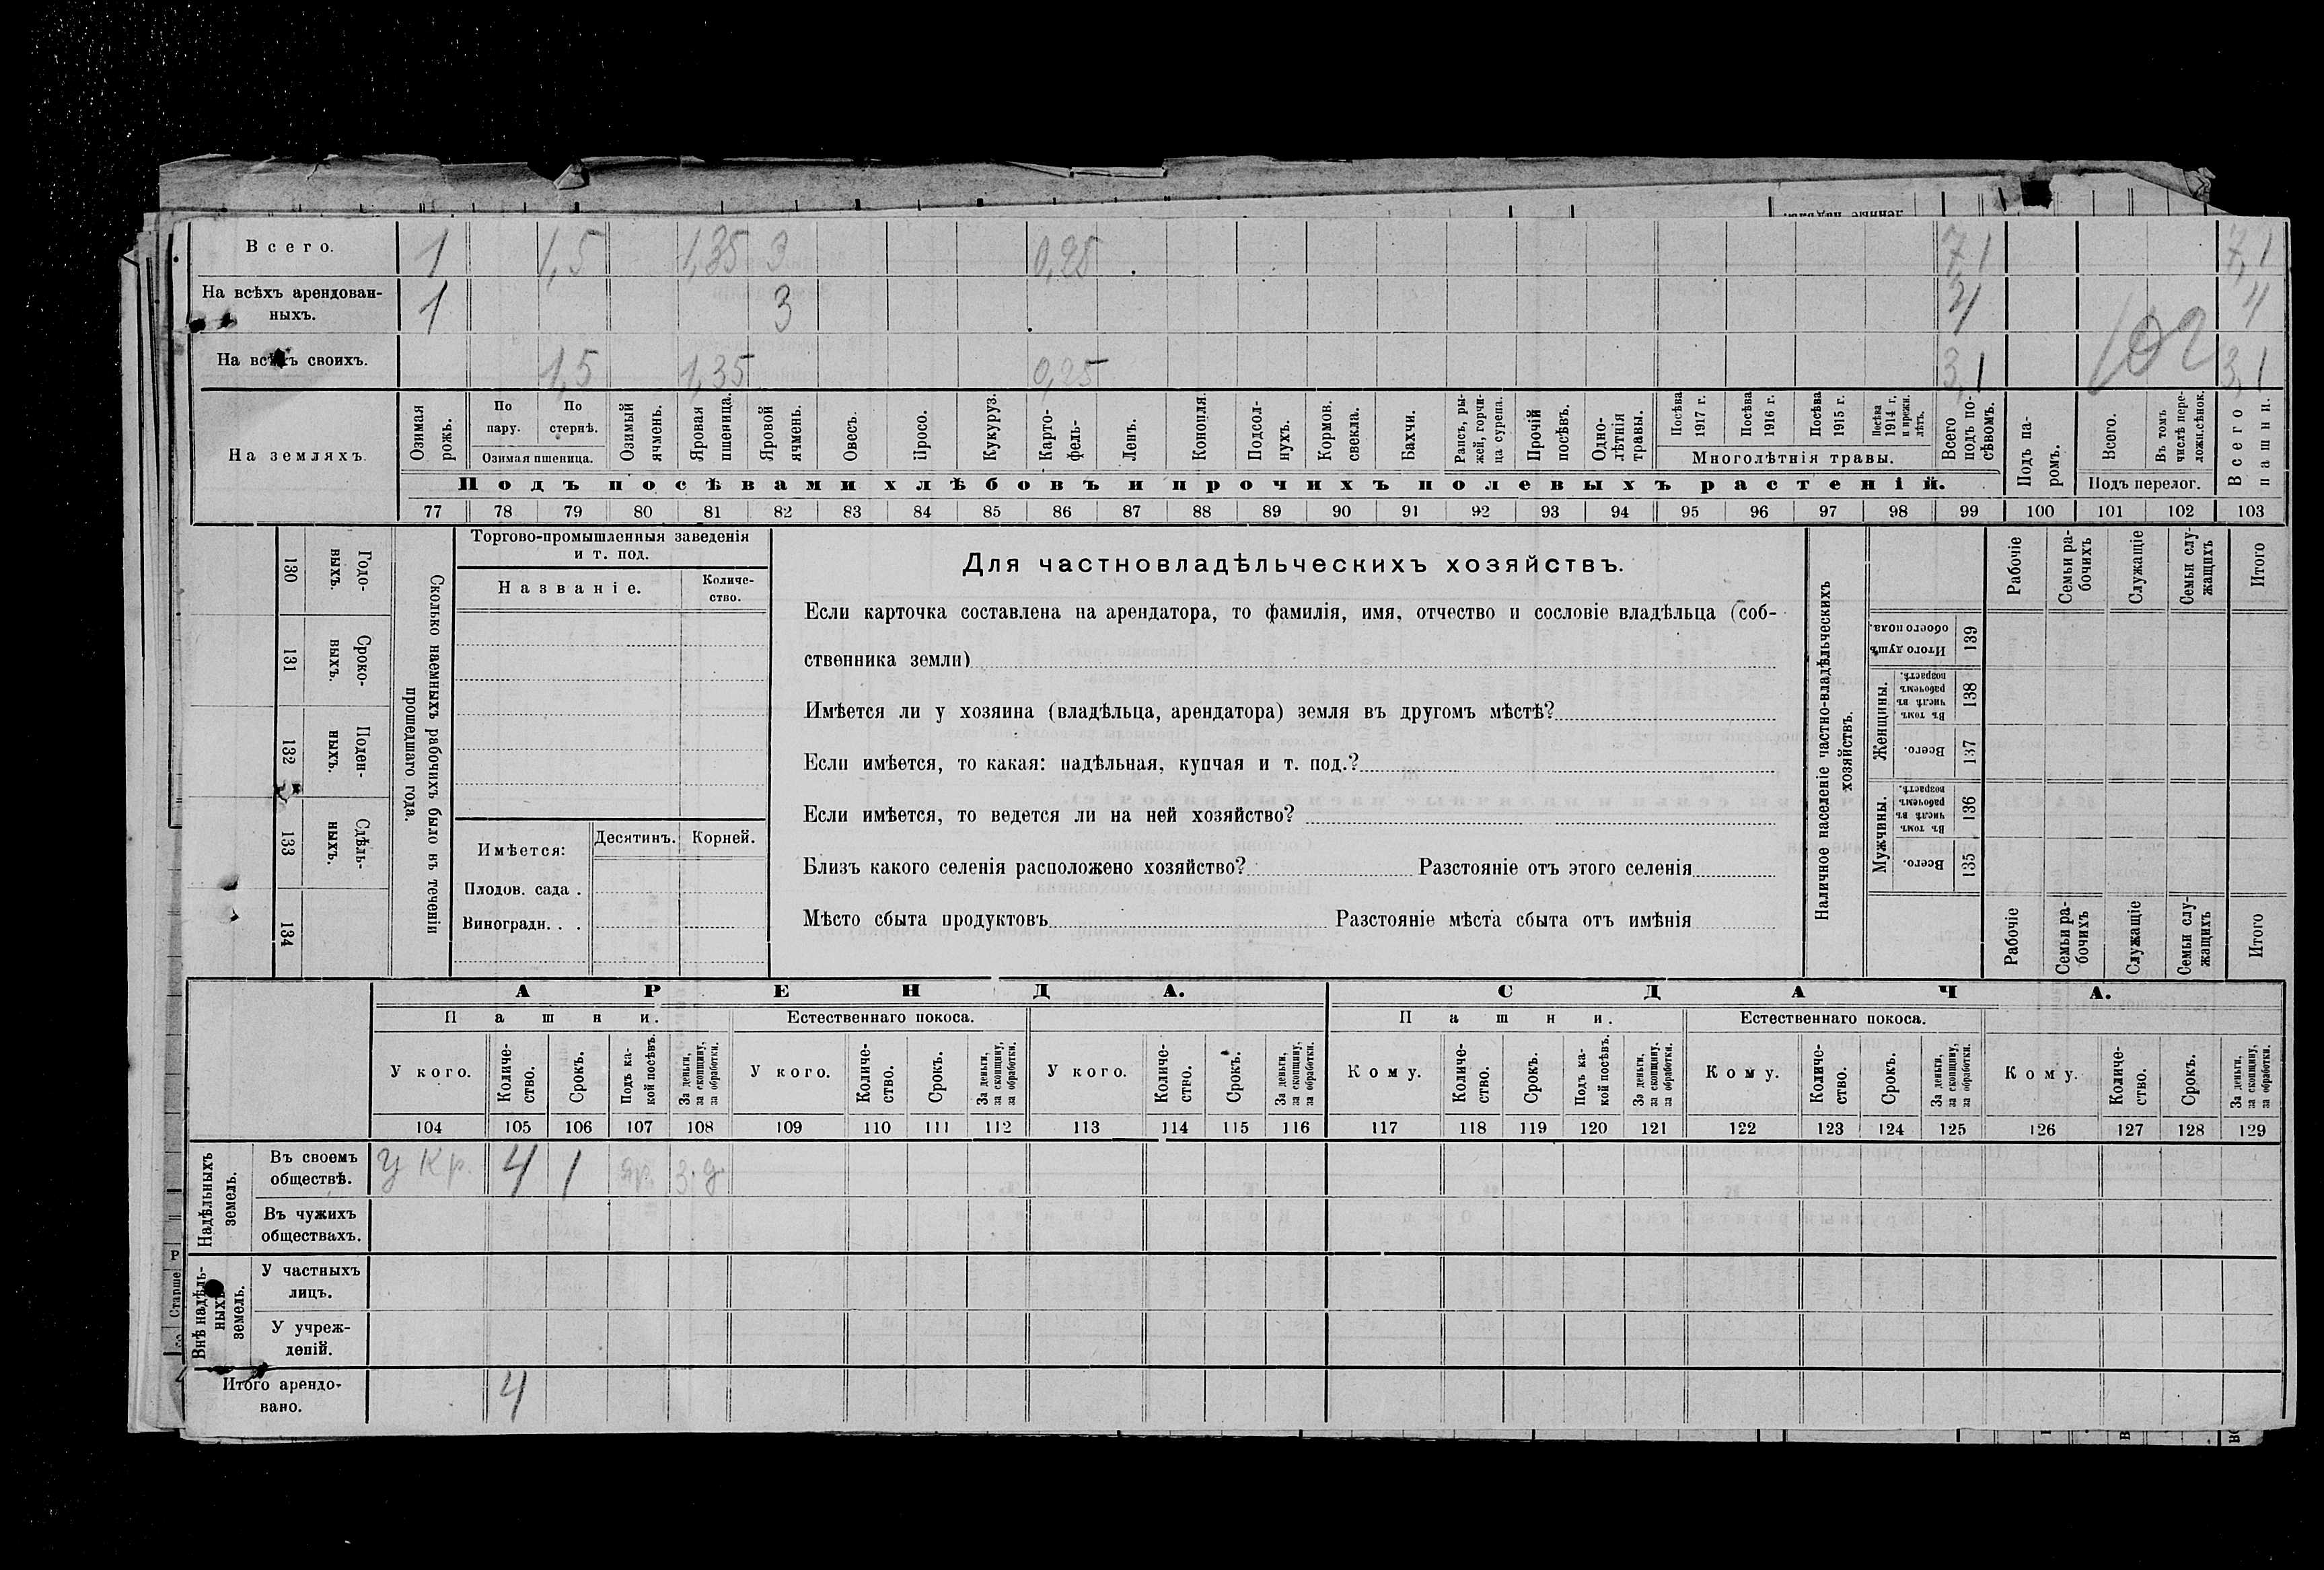 Всего. 1 1,5 1,35 3 0,25 7,1 7,1
На всѣхъ арендован-
ныхъ. 1 3 4 4
102
На всѣхъ своихъ. 1,5 1,35 0,25 3,1 3,1
На земляхъ.
Озимая рожь.
По пару.
По стернѣ.
Озимая пшеница.
Озимый ячмень.
Яровая пшеница.
Яровой ячмень.
Овесъ.
Просо.
Кукуруз.
Карто-
фель-
Ленъ.
Конопля.
Подсол-
нухъ.
Кормов.
свекла.
Бахчи.
Рапсъ, ры-
жей, горчи-
ца сурепа.
Прочій
посѣвъ.
Одно-
лѣтнія
травы.
Посѣва
1917 г.
Посѣва
1916 г.
Посѣва
1915 г.
Посѣва
1914 г.
и прежн.
лѣтъ.
Многолѣтнія травы.
Всего
подъ по-
сѣвомъ.
Подъ па-
ромъ.
Всего.
Въ томъ
числѣ пере-
ложн.сѣнок.
Подъ перелог.
Всего
пашни.
Подъ посѣвами хлѣбовъ и прочихъ полевыхъ растеній.
77 78 79 80 81 82 83 84 85 86 87 88 89 90 91 92 93 94 95 96 97 98 99 100 101 102 103
130 Годо-
выхъ.
131 Сроко-
выхъ.
132 Поден-
ныхъ.
133 Сдѣль-
ныхъ.
134
Сколько наемныхъ рабочихъ было въ теченіи
прошедшаго года.
Торгово-промышленныя заведенія
и т. под.
Названіе.
Количе-
ство.
Имѣется: Десятинъ. Корней.
Плодов. сада .
Виноградн. . .
Для частновладѣльческихъ хозяйствъ.
Если карточка составлена на арендатора, то фамилія, имя, отчество и сословіе владѣльца (соб-
ственника земли)
Имѣется ли у хозяина (владѣльца, арендатора) земля въ другомъ мѣстѣ?
Если имѣется, то какая: надѣльная, купчая и т. под.?
Если имѣется, то ведется ли на ней хозяйство?
Близъ какого селенія расположено хозяйство? Разстояніе отъ этого селенія
Мѣсто сбыта продуктовъ Разстояніе мѣста сбыта отъ имѣнія
Наличное населеніе частно-владѣльческихъ
хозяйствъ.
Рабочіе
Семьи ра-
бочихъ
Служащіе
Семьи слу-
жащихъ
Итого
Итого душъ
обоего пола.
139
Женщины.
Въ томъ
числѣ въ
рабочемъ
возрастѣ.
138
Всего.
137
Мужчины.
Въ томъ
числѣ въ
рабочемъ
возрастѣ.
136
Всего.
135
Рабочіе
Семьи ра-
бочихъ
Служащіе
Семьи слу-
жащихъ
Итого
АРЕНДА. СДАЧА.
Пашни. Естественнаго покоса. Пашни. Естественнаго покоса.
У кого.
Количе-
ство.
Срокъ.
Подъ ка-
кой посѣвъ.
За деньги,
за скопщину,
за обработки.
У кого.
Количе-
ство.
Срокъ.
За деньги,
за скопщину,
за обработки.
У кого.
Количе-
ство.
Срокъ.
За деньги,
за скопщину,
за обработки.
Кому.
Количе-
ство.
Срокъ.
Подъ ка-
кой посѣвъ.
За деньги,
за скопщину.
за обработки.
Кому.
Количе-
ство.
Срокъ.
За деньги,
за скопщину,
за обработки.
Кому.
Количе-
ство.
Срокъ.
За деньги,
за скопщину,
за обработки.
104 105 106 107 108 109 110 111 112 113 114 115 116 117 118 119 120 121 122 123 124 125 126 127 128 129
Надѣльныхъ
земель.
Въ своемъ
обществѣ. у кр. 4 1 яр. з. д.
Въ чужихъ
обществахъ.
Внѣ надѣль-
ныхъ
земель.
У частныхъ
лицъ.
У учреж-
деній.
Итого арендо-
вано. 4
Р
Старше